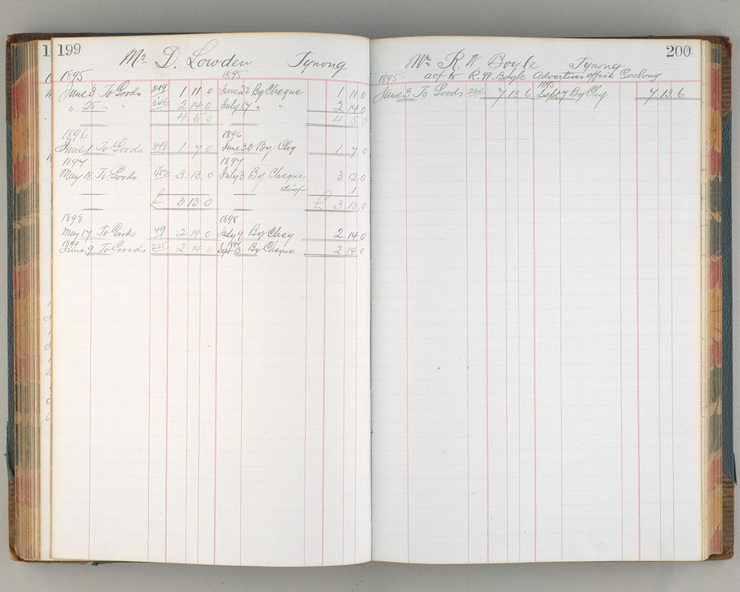 1 199
Mr D. Lowden Tynong
1895 1895
June 3 To Goods 1 11 0 June 22 By Cheque 1 11 0
" 25 " " 2 14 0 July 17 " " 2 14 0
4 5 0 4 5 0
1896 1896
June 1 To Goods 1 7 0 June 30 By Chq 1 7 0
1897 1897
May 18 To Goods 3 13 0 July 3 By Cheque 3 12 0
1
£ 3 13 0 £ 3 13 0
1898 1898
May 17 To Goods 49 2 14 0 July 9 By Cheq 2 14 0
1899 1899
June 9 To Goods 225 2 14 0 Sept 8 By Cheque 2 14 0
200
Mr. R. W. Boyle Tynong
1895 a/c to R. W. Boyle Advertiser office Geelong
1895
June 3 To Goods 7 13 6 Sept 7 By Chq 7 13 6